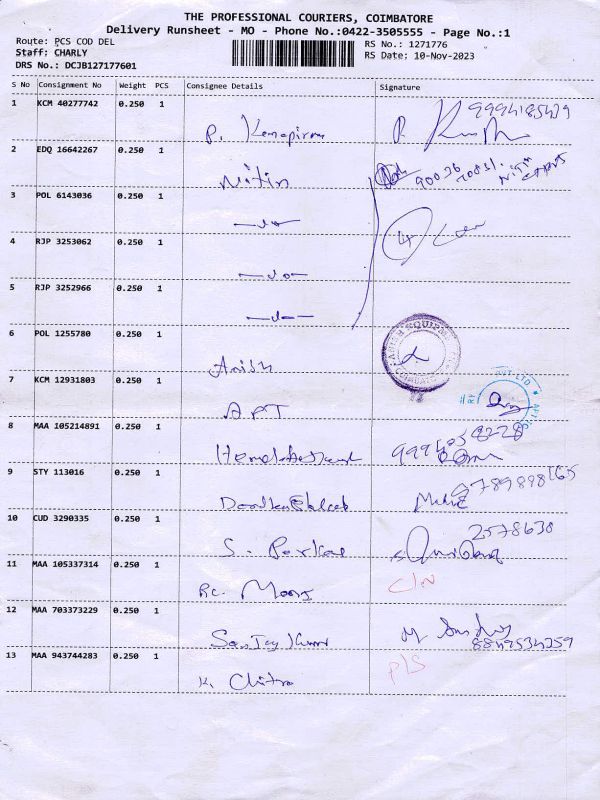 THE PROFESSIONAL COURIERS, COIMBATORE
Delivery Runsheet - MO - Phone No.:0422-3505555 - Page No.:1
Route: PCS COD DEL
RS No.: 1271776
Staff: CHARLY
RS Date: 10-Nov-2023
DRS No.: DCJB127177601
S No Consignment No Weight PCS Consignee Details Signature
1 KCM 40277742 0.250 1
P.
2 EDQ 16642267 0.250 1
Nitin
3 POL 6143036 0.250 1
4 RJP 3253062 0.250 1
5 RJP 3252966 0.250 1
6 POL 1255780 0.250 1
Anish
7 KCM 12931803 0.250 1
APT
PVT LTD
8 MAA 105214891 0.250 1
9 STY 113016 0.250 1
10 CUD 3290335 0.250 1
2578630
S.
11 MAA 105337314 0.250 1
12 MAA 703373229 0.250 1
Sanjay Kumar
13 MAA 943744283 0.250 1
P/S
K. Chitra